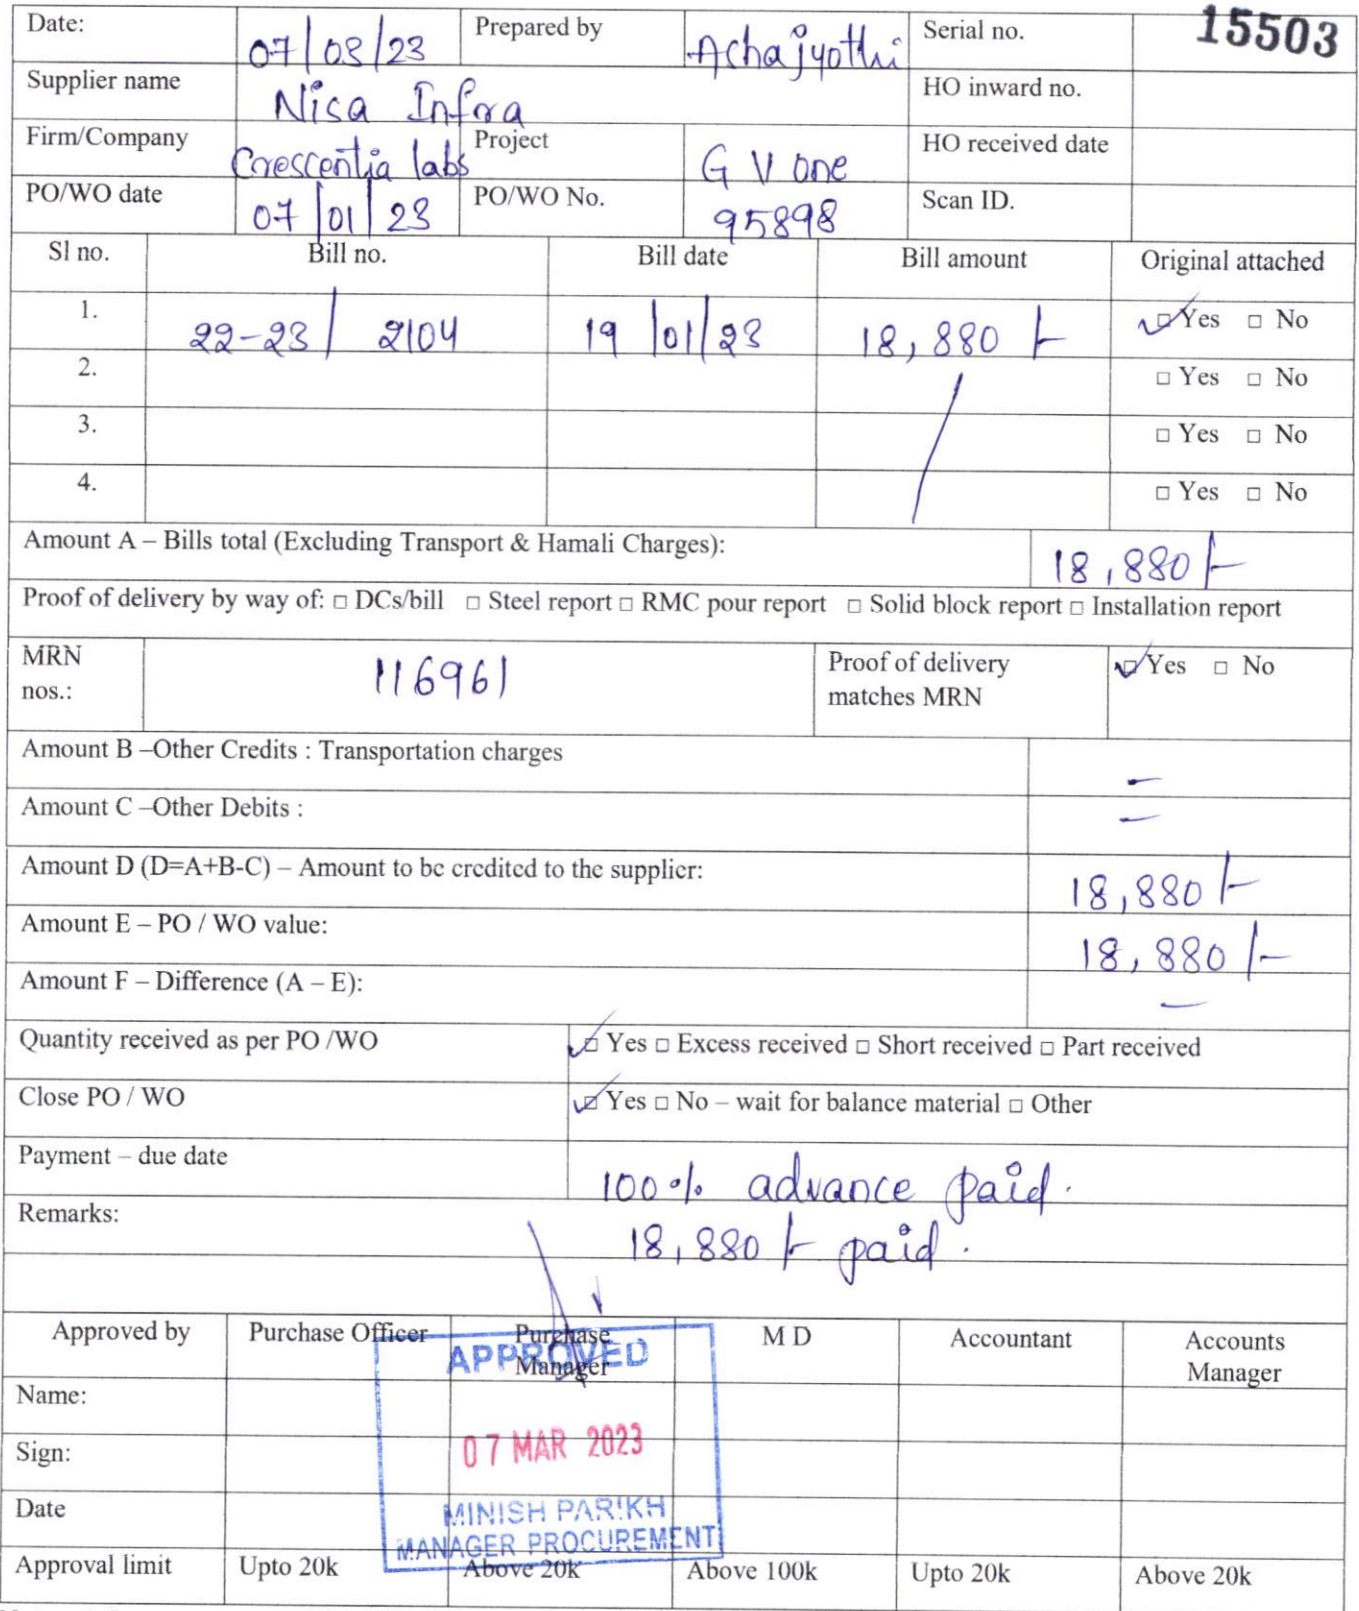 Date: 07/03/23 Prepared by Achajyothi Serial no. 15503
Supplier name Nisa Infra HO inward no.
Firm/Company Crescentia labs Project G V one HO received date
PO/WO date 07/01/23 PO/WO No. 95898 Scan ID.
Sl no. Bill no. Bill date Bill amount Original attached
1. 22-23/ 2104 19/01/23 18,880/- ☑ Yes □ No
2. □ Yes □ No
3. □ Yes □ No
4. □ Yes □ No
Amount A – Bills total (Excluding Transport & Hamali Charges): 18,880/-
Proof of delivery by way of: □ DCs/bill □ Steel report □ RMC pour report □ Solid block report □ Installation report
MRN nos.: 116961 Proof of delivery matches MRN ☑ Yes □ No
Amount B –Other Credits : Transportation charges –
Amount C –Other Debits : –
Amount D (D=A+B-C) – Amount to be credited to the supplier: 18,880/-
Amount E – PO / WO value: 18,880/-
Amount F – Difference (A – E): –
Quantity received as per PO /WO ☑ Yes □ Excess received □ Short received □ Part received
Close PO / WO ☑ Yes □ No – wait for balance material □ Other
Payment – due date 100% advance paid.
Remarks: 18,880/- paid.
Approved by Purchase Officer Purchase Manager M D Accountant Accounts Manager
APPROVED
Name:
Sign: 07 MAR 2023
Date MINISH PARIKH
MANAGER PROCUREMENT
Approval limit Upto 20k Above 20k Above 100k Upto 20k Above 20k